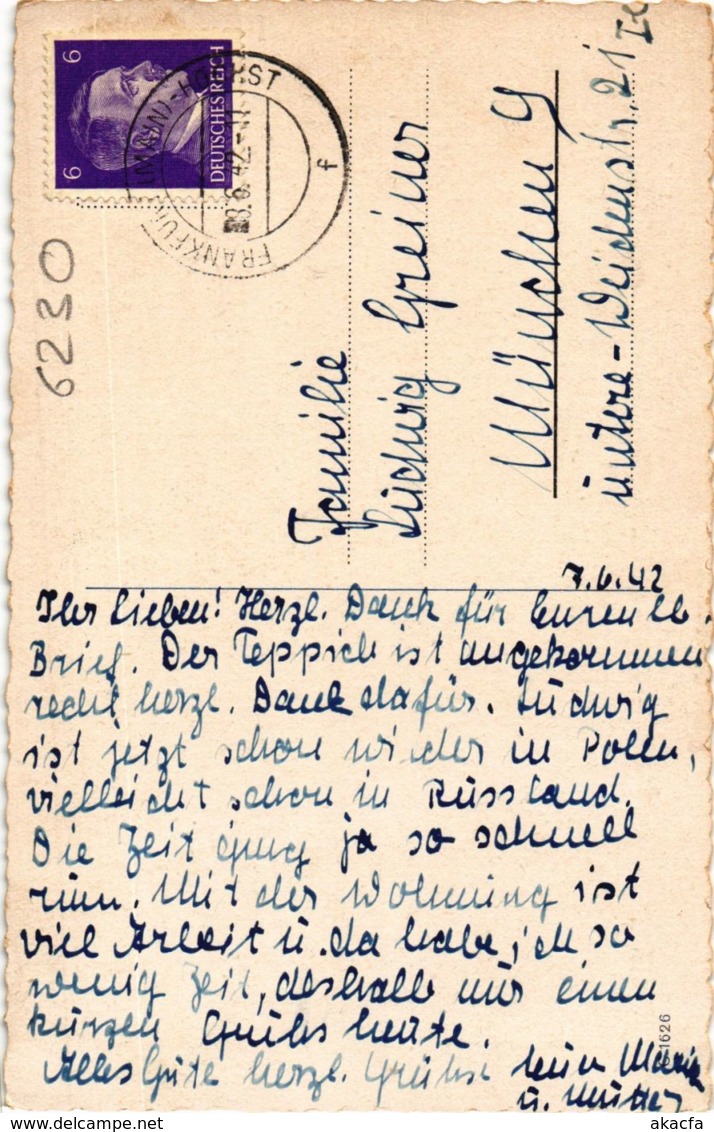 6
6
DEUTSCHES REICH
FRANKFURT (MAIN)-HÖCHST
8.6.42.-11
f
6230
Familie
Ludwig Greiner
München 9
untere-Weidenstr. 21
7.6.42
Ihr lieben! Herzl. Dank für Euren lb.
Brief. Der Teppich ist angekommen
recht herzl. Dank dafür. Ludwig
ist jetzt schon wieder in Polen,
vielleicht schon in Russland.
Die Zeit ging ja so schnell
rum. Mit der Wohnung ist
viel Arbeit u. da habe ich so
wenig Zeit, deshalb nur einen
kurzen Gruß heute.
Alles Gute herzl. Grüße
u. Mutter
1626
akacfa
www.delcampe.net